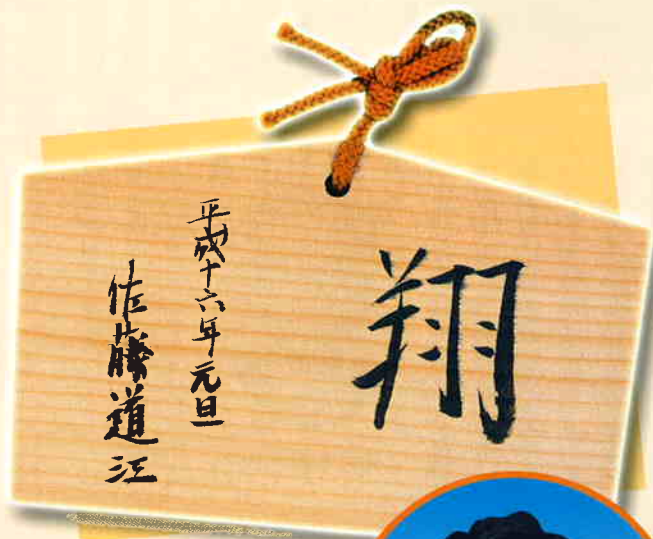 翔
平成十六年元旦
佐藤道江